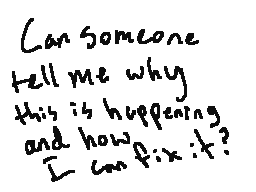 Can someone
tell me why
this is happening
and how
I can fix it?